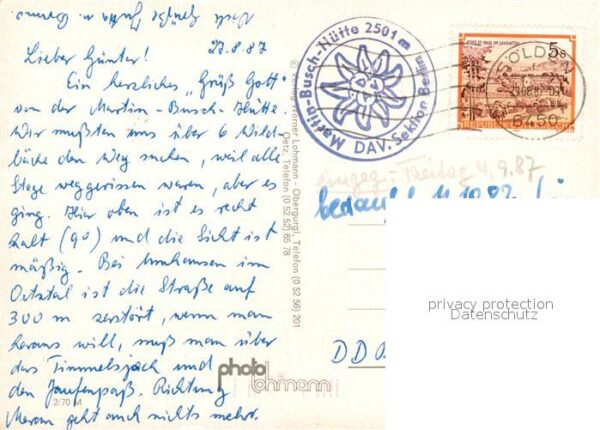 Noch herzliche Grüße Jutta u. Benno
27.8.87
Lieber Günter!
Ein herzliches „Grüß Gott"
von der Martin-Busch-Hütte.
Wir mußten uns über 6 Wild-
bäche den Weg suchen, weil alle
Stege weggerissen waren, aber es
ging. Hier oben ist es recht
kalt (9°) und die Sicht ist
mäßig. Bei Umhausen im
Ötztal ist die Straße auf
300 m zerstört, wenn man
heraus will, muß man über
das Timmelsjoch und
den Jaufenpaß. Richtung
Meran geht auch nichts mehr.
2/70 M
photo
lohmann
Lohmann - Obergurgl, Telefon (0 52 56) 201
Oetz, Telefon (0 52 52) 65 78
Martin-Busch-Hütte 2501 m
DAV. Sektion Berlin
STIFT ST. PAUL IM LAVANTTAL
5 S
SÖLDEN
6450
eingeg. Freitag 4.9.87
DDR
privacy protection
Datenschutz